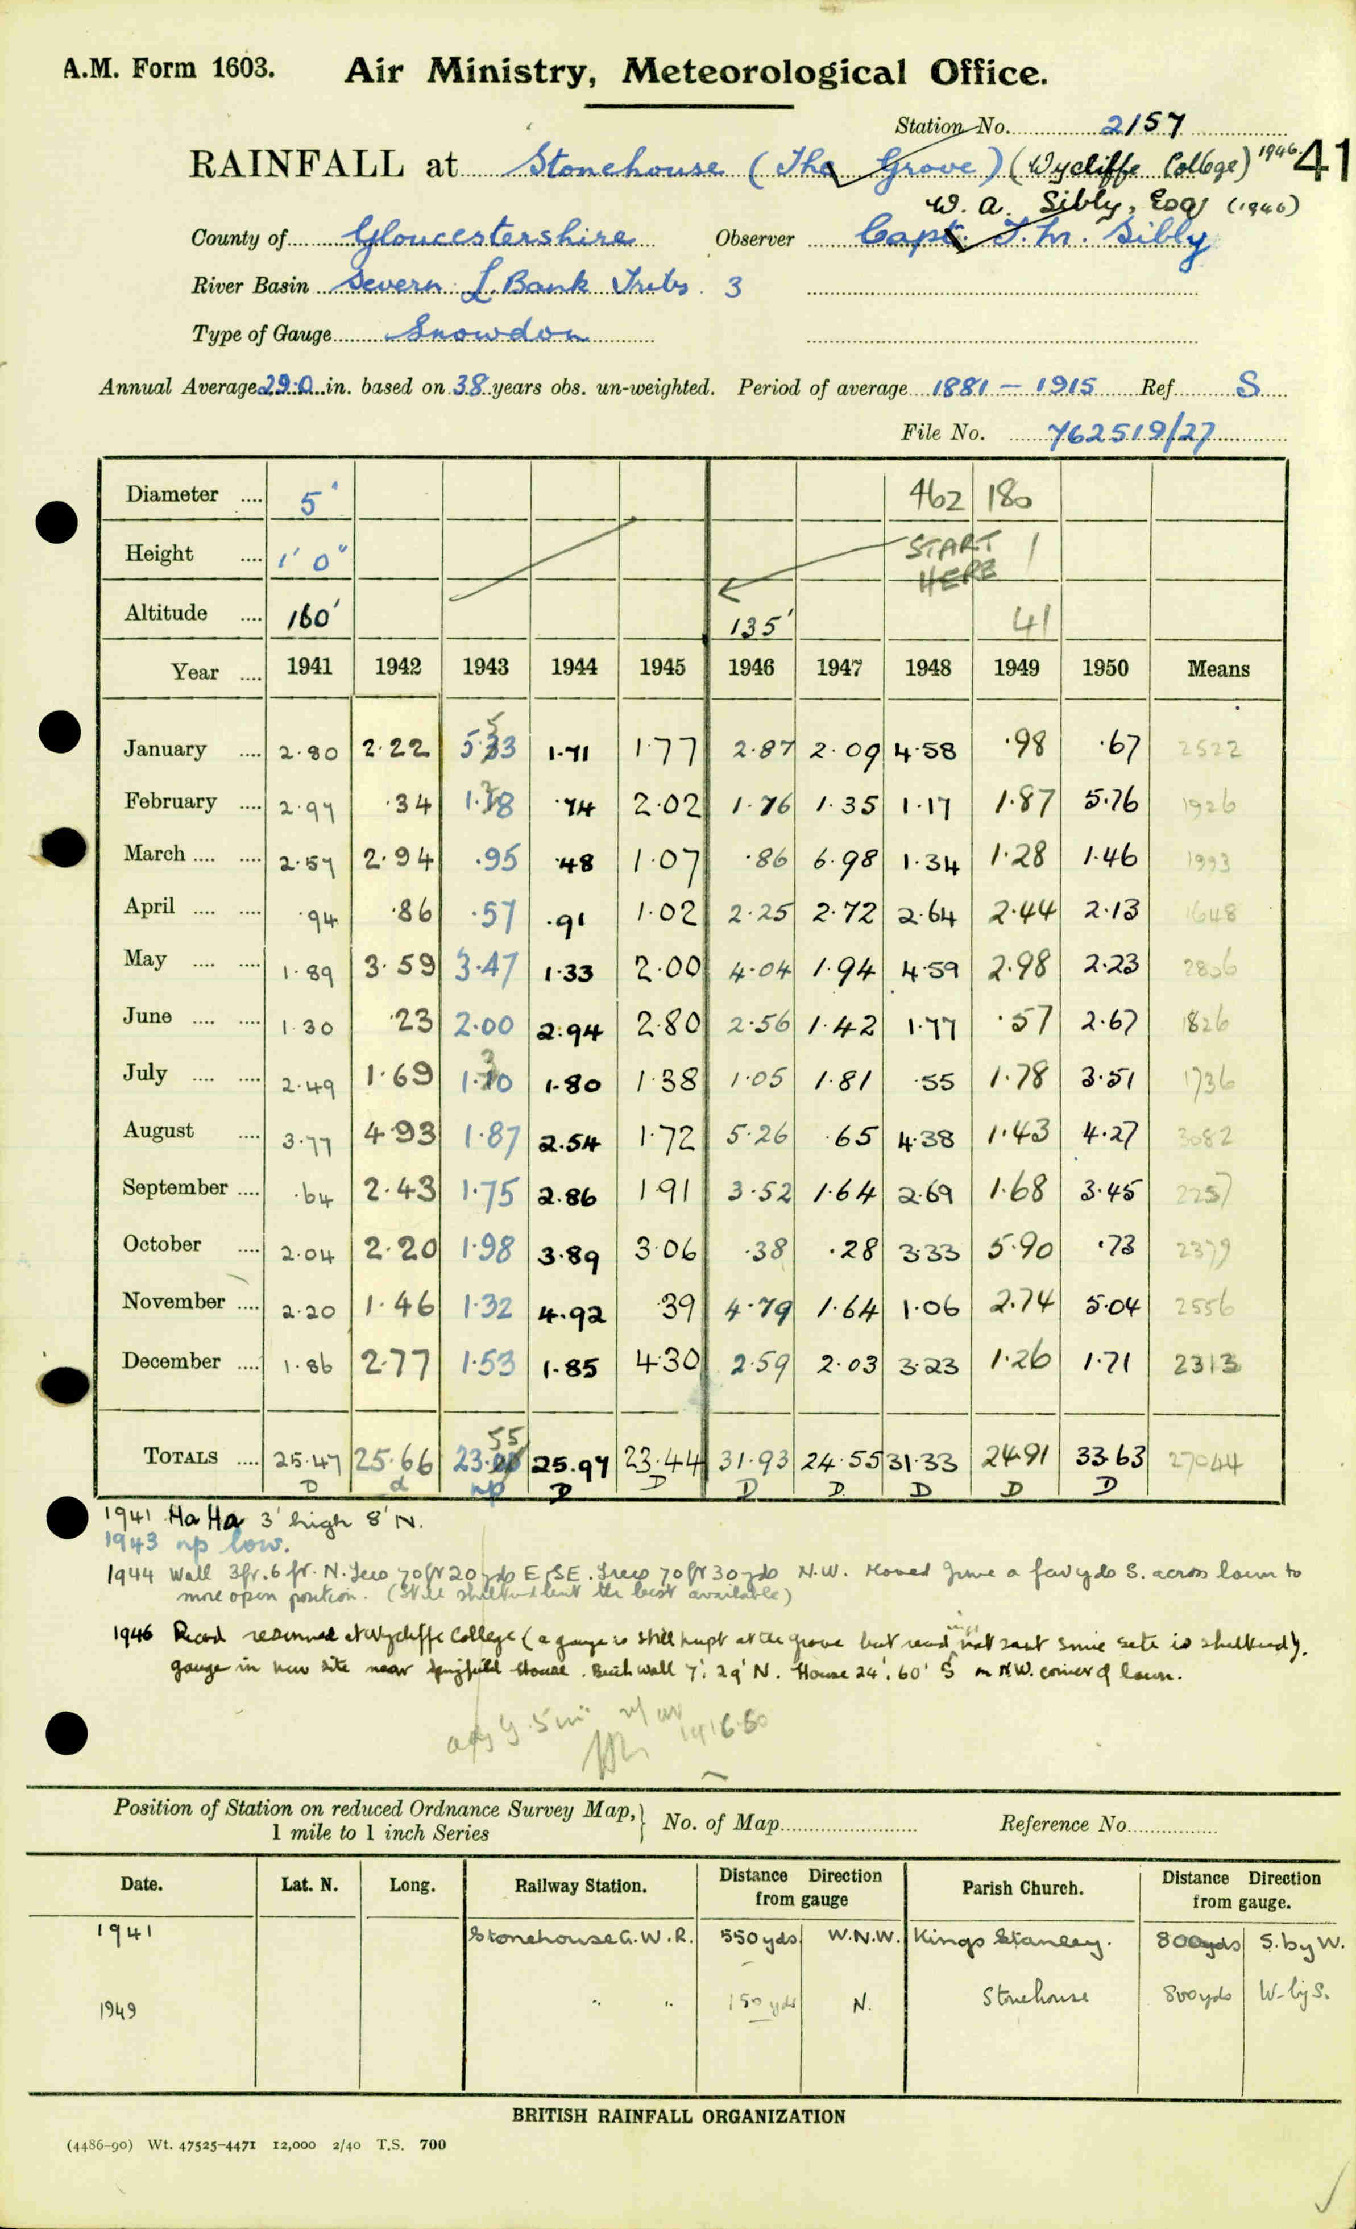 A.M. Form 1603. Air Ministry, Meteorological Office.
Station No. 2157
RAINFALL at Stonehouse (The Grove) (Wycliffe College) 1946 41
W. A. Sibly, Esq (1946)
County of Gloucestershire Observer Capt. T. M. Sibly
River Basin Severn L. Bank Tribs. 3
Type of Gauge Snowdon
Annual Average 29.0 in. based on 38 years obs. un-weighted. Period of average 1881 – 1915 Ref S
File No. 762519/27
Diameter .... 5" 462 180
Height .... 1' 0" START HERE 1
Altitude .... 160' 135' 41
Year .... 1941 1942 1943 1944 1945 1946 1947 1948 1949 1950 Means
January .... 2.80 2.22 5.53 1.71 1.77 2.87 2.09 4.58 .98 .67 2522
February .... 2.97 .34 1.38 .74 2.02 1.76 1.35 1.17 1.87 5.76 1926
March .... .... 2.57 2.94 .95 .48 1.07 .86 6.98 1.34 1.28 1.46 1993
April .... .... .94 .86 .57 .91 1.02 2.25 2.72 2.64 2.44 2.13 1648
May .... .... 1.89 3.59 3.47 1.33 2.00 4.04 1.94 4.59 2.98 2.23 2806
June .... .... 1.30 .23 2.00 2.94 2.80 2.56 1.42 1.77 .57 2.67 1826
July .... .... 2.49 1.69 1.30 1.80 1.38 1.05 1.81 .55 1.78 3.51 1736
August .... 3.77 4.93 1.87 2.54 1.72 5.26 .65 4.38 1.43 4.27 3082
September .... .64 2.43 1.75 2.86 1.91 3.52 1.64 2.69 1.68 3.45 2257
October .... 2.04 2.20 1.98 3.89 3.06 .38 .28 3.33 5.90 .73 2379
November .... 2.20 1.46 1.32 4.92 .39 4.79 1.64 1.06 2.74 5.04 2556
December .... 1.86 2.77 1.53 1.85 4.30 2.59 2.03 3.23 1.26 1.71 2313
TOTALS .... 25.47 25.66 23.55 25.97 23.44 31.93 24.55 31.33 24.91 33.63 27044
D d np D D D D D D D
1941 Ha Ha 3' high 8' N.
1943 np low.
1944 Wall 3ft. 6 ft. N. Trees 70ft 20 yds E, SE. Trees 70 ft 30 yds N.W. Moved gauge a few yds S. across lawn to
more open position. (Still sheltered but the best available)
1946 Record resumed at Wycliffe College (a gauge is still kept at the grove but read sent since site is sheltered).
gauge in new site near Springfield House. Brick wall 7'. 29' N. House 24'. 60' S on N.W. corner of lawn.
14.6.50
Position of Station on reduced Ordnance Survey Map, 1 mile to 1 inch Series No. of Map Reference No.
Date. Lat. N. Long. Railway Station. Distance Direction from gauge Parish Church. Distance Direction from gauge.
1941 Stonehouse G.W.R. 550 yds W.N.W. Kings Stanley. 800 yds S. by W.
1949 " " 150 yds N. Stonehouse 800 yds W. by S.
BRITISH RAINFALL ORGANIZATION
(4486-90) Wt. 47525-4471 12,000 2/40 T.S. 700